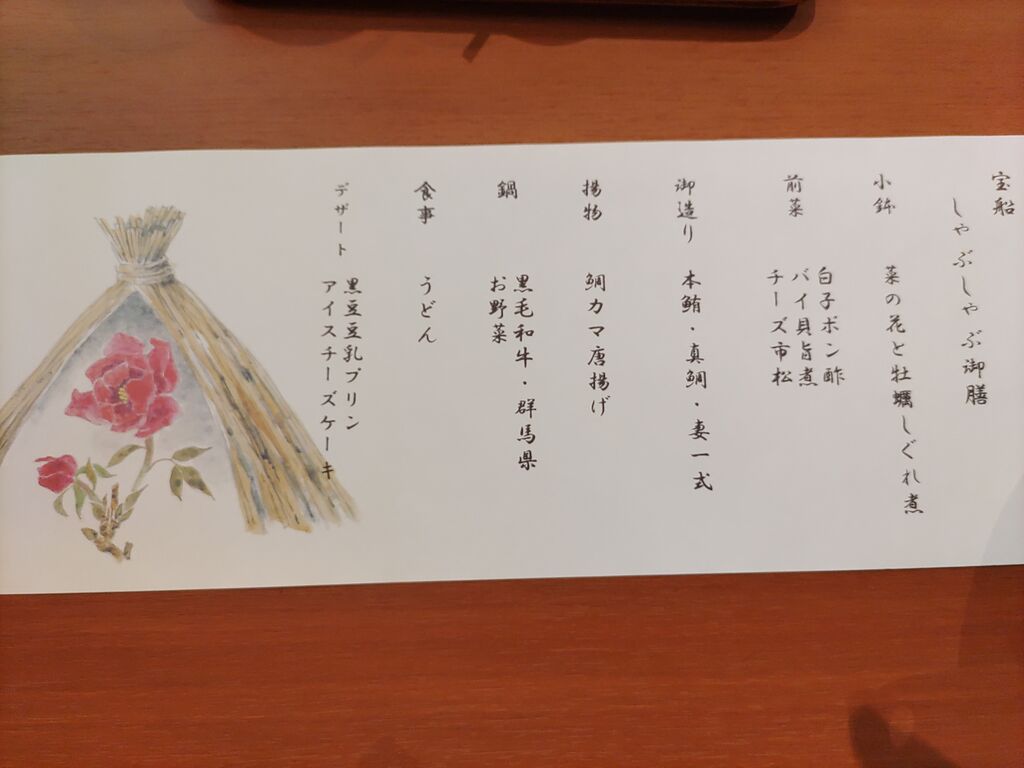 宝船
しゃぶしゃぶ御膳
小鉢 菜の花と牡蠣しぐれ煮
前菜 白子ポン酢
バイ貝旨煮
チーズ市松
御造り 本鮪・真鯛・妻一式
揚物 鯛カマ唐揚げ
鍋 黒毛和牛・群馬県
お野菜
食事 うどん
デザート 黒豆豆乳プリン
アイスチーズケーキ